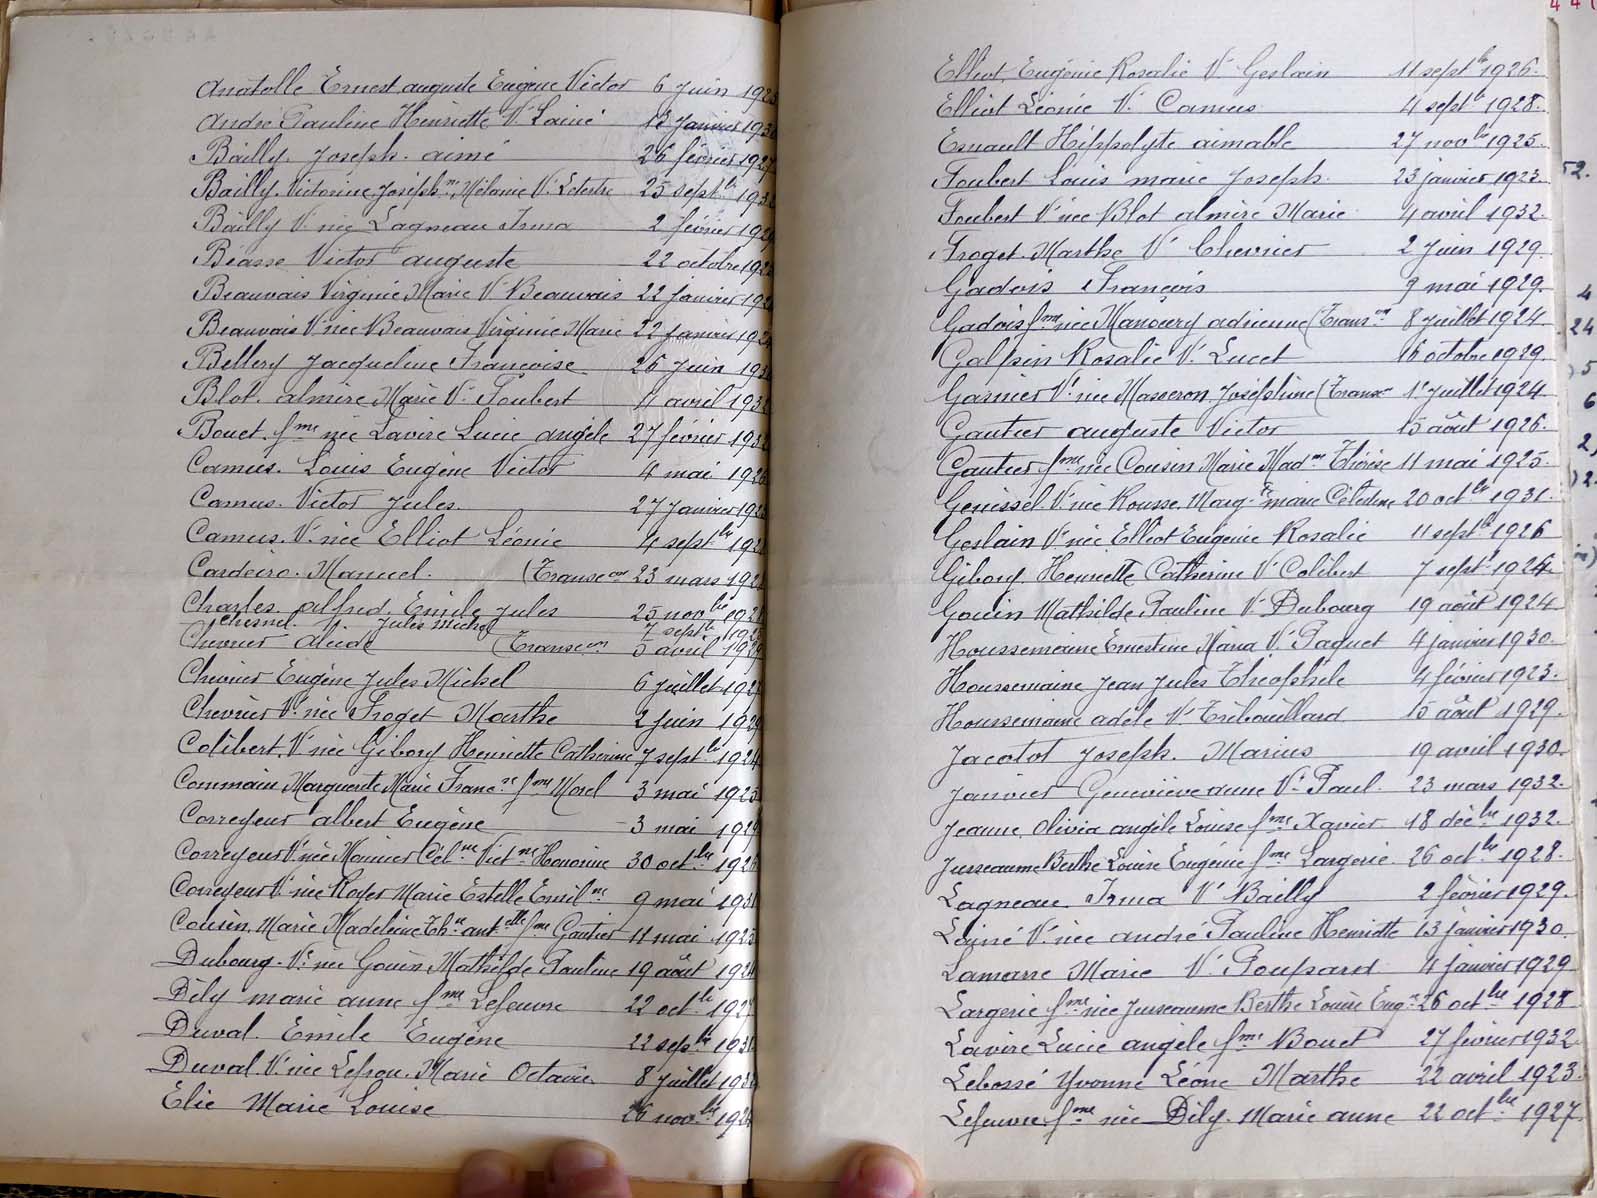 Anatolle Ernest auguste Eugène Victor 6 Juin 192
André Pauline Henriette Ve Lainé 13 Janvier 1930
Bailly Joseph aimé 26 février 1927
Bailly Victorine Joséphne Mélanie Ve Letertre 25 septbre 193
Bailly Ve née Lagneau Irma 2 février 192
Béasse Victor auguste 22 octobre 192
Beauvais Virginie Marie Ve Beauvais 22 Janvier 192
Beauvais Ve née Beauvais Virginie Marie 22 Janvier 192
Bellery Jacqueline Françoise 26 Juin 193
Blot almire Marie Ve Foubert 4 avril 193
Bouet fme née Lavire Lucie angèle 27 février 193
Camus Louis Eugène Victor 4 mai 192
Camus Victor Jules 27 Janvier 192
Camus Ve née Elliot Léonie 4 septbre 192
Cardeiro Manuel (Transcon 23 mars 192
Charles alfred Emile Jules 25 novbre 192
Chesnel Jules Michel 7 septbre 192
Chevrier (Transcon 5 avril 192
Chevrier Eugène Jules Michel 6 Juillet 192
Chevrier Ve née Froget Marthe 2 Juin 1929
Colibert Ve née Gibory Henriette Catherine 7 septbre 1924
Commain Marguerite Marie Francse fme Morel 3 mai 192
Correyeur albert Eugène 3 mai 192
Correyeur Ve née Monnier Célne Victne Honorine 30 octbre 192
Correyeur Ve née Royer Marie Estelle Emilne 9 mai 193
Cousin Marie Madeleine Thse antette fme Gautier 11 mai 1925
Dubourg Ve née Gouin Mathilde Pauline 19 août 1924
Dily marie anne fme Lefeuvre 22 octbre 1927
Duval Emile Eugène 22 septbre 193
Duval Ve née Lefrou Marie Octavie 8 Juillet 193
Elie Marie Louise 26 novbre 192
Elliot Eugénie Rosalie Ve Geslain 11 septbre 1926.
Elliot Léonie Ve Camus 4 septbre 1928.
Esnault Hippolyte aimable 27 novbre 1925.
Foubert Louis marie Joseph 23 janvier 1923.
Foubert Ve née Blot almire Marie 4 avril 1932.
Froget Marthe Ve Chevrier 2 Juin 1929.
Gadois François 9 mai 1929.
Gadois fme née Manoury adrienne (Transcon 8 Juillet 1924
Galpin Rosalie Ve Lucet 16 octobre 1929.
Garnier Ve née Masseron Joséphine (Transcon 1er Juillet 1924
Gautier auguste Victor 15 août 1926.
Gautier fme née Cousin Marie Madne Thérèse 11 mai 1925.
Genissel Ve née Rousse Marg.te marie Célestine 20 octbre 1931.
Geslain Ve née Elliot Eugénie Rosalie 11 septbre 1926
Gibory Henriette Catherine Ve Colibert 7 septbre 1924
Gouin Mathilde Pauline Ve Dubourg 19 août 1924
Houssemaine Ernestine Maria Ve Paquet 4 janvier 1930.
Houssemaine Jean Jules Théophile 4 février 1923.
Houssemaine adèle Ve Trébouillard 15 août 1929.
Jacotot Joseph Marius 19 avril 1930.
Janvier Geneviève anne Ve Paul 23 mars 1932.
Jeanne Olivia angèle Louise fme Xavier 18 décbre 1932.
Jusseaume Berthe Louise Eugénie fme Largerie 26 octbre 1928.
Lagneau Irma Ve Bailly 2 février 1929.
Lainé Ve née andré Pauline Henriette 13 janvier 1930.
Lamarre Marie Ve Poupard 4 janvier 1929
Largerie fme née Jusseaume Berthe Louise Eugie 26 octbre 1928
Lavire Lucie angèle fme Bouet 27 février 1932
Lebossé Yvonne Léone Marthe 22 avril 1923.
Lefeuvre fme née Dily Marie anne 22 octbre 1927.